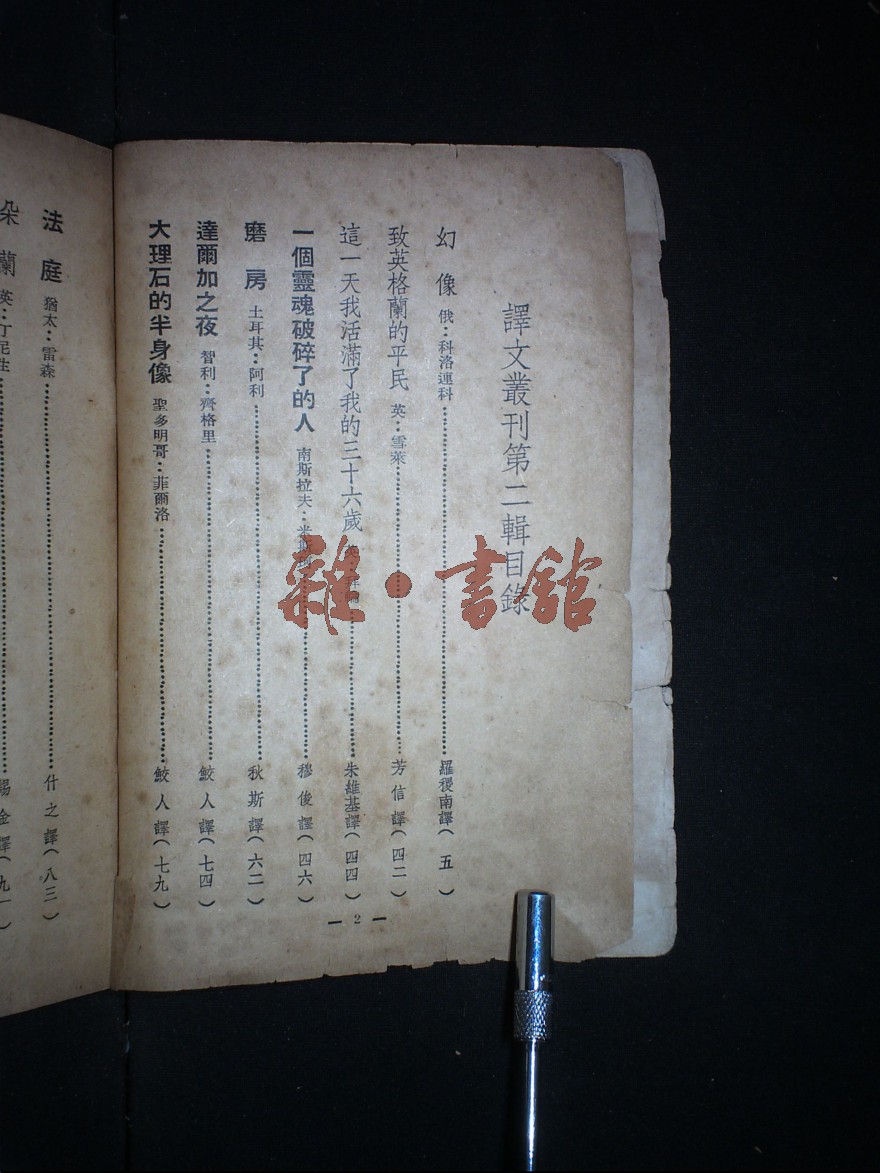 譯文叢刊第二輯目錄
幻像 俄：科洛連科………羅稷南譯（五）
致英格蘭的平民 英：雪萊………芳信譯（四二）
這一天我活滿了我的三十六歲………朱維基譯（四四）
一個靈魂破碎了的人 南斯拉夫：………穆俊譯（四六）
磨房 土耳其：阿利………秋斯譯（六二）
達爾加之夜 智利：齊格里………鮫人譯（七四）
大理石的半身像 聖多明哥：菲爾洛………鮫人譯（七九）
— 2 —
法庭 猶太：雷森………什之譯（八三）
朵蘭 英：丁尼生………金譯（九一
雜·書館